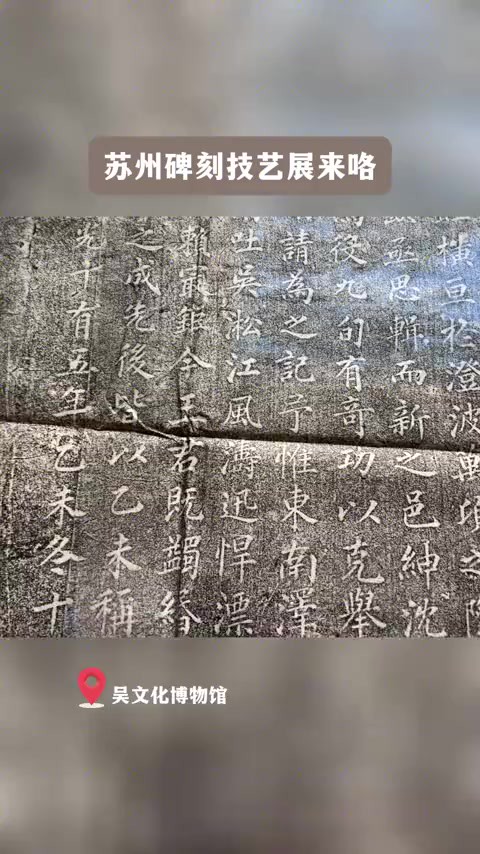 苏州碑刻技艺展来咯
橫亘於澄波萬頃之
亟思輯而新之邑紳沈
役九旬有奇功以克舉
請為之記予惟東南澤
吐吳淞江風濤迅悍漂
賴寔鉅今王君既蠲
之成先後皆以乙未稱
光十有五年乙未冬十
吴文化博物馆